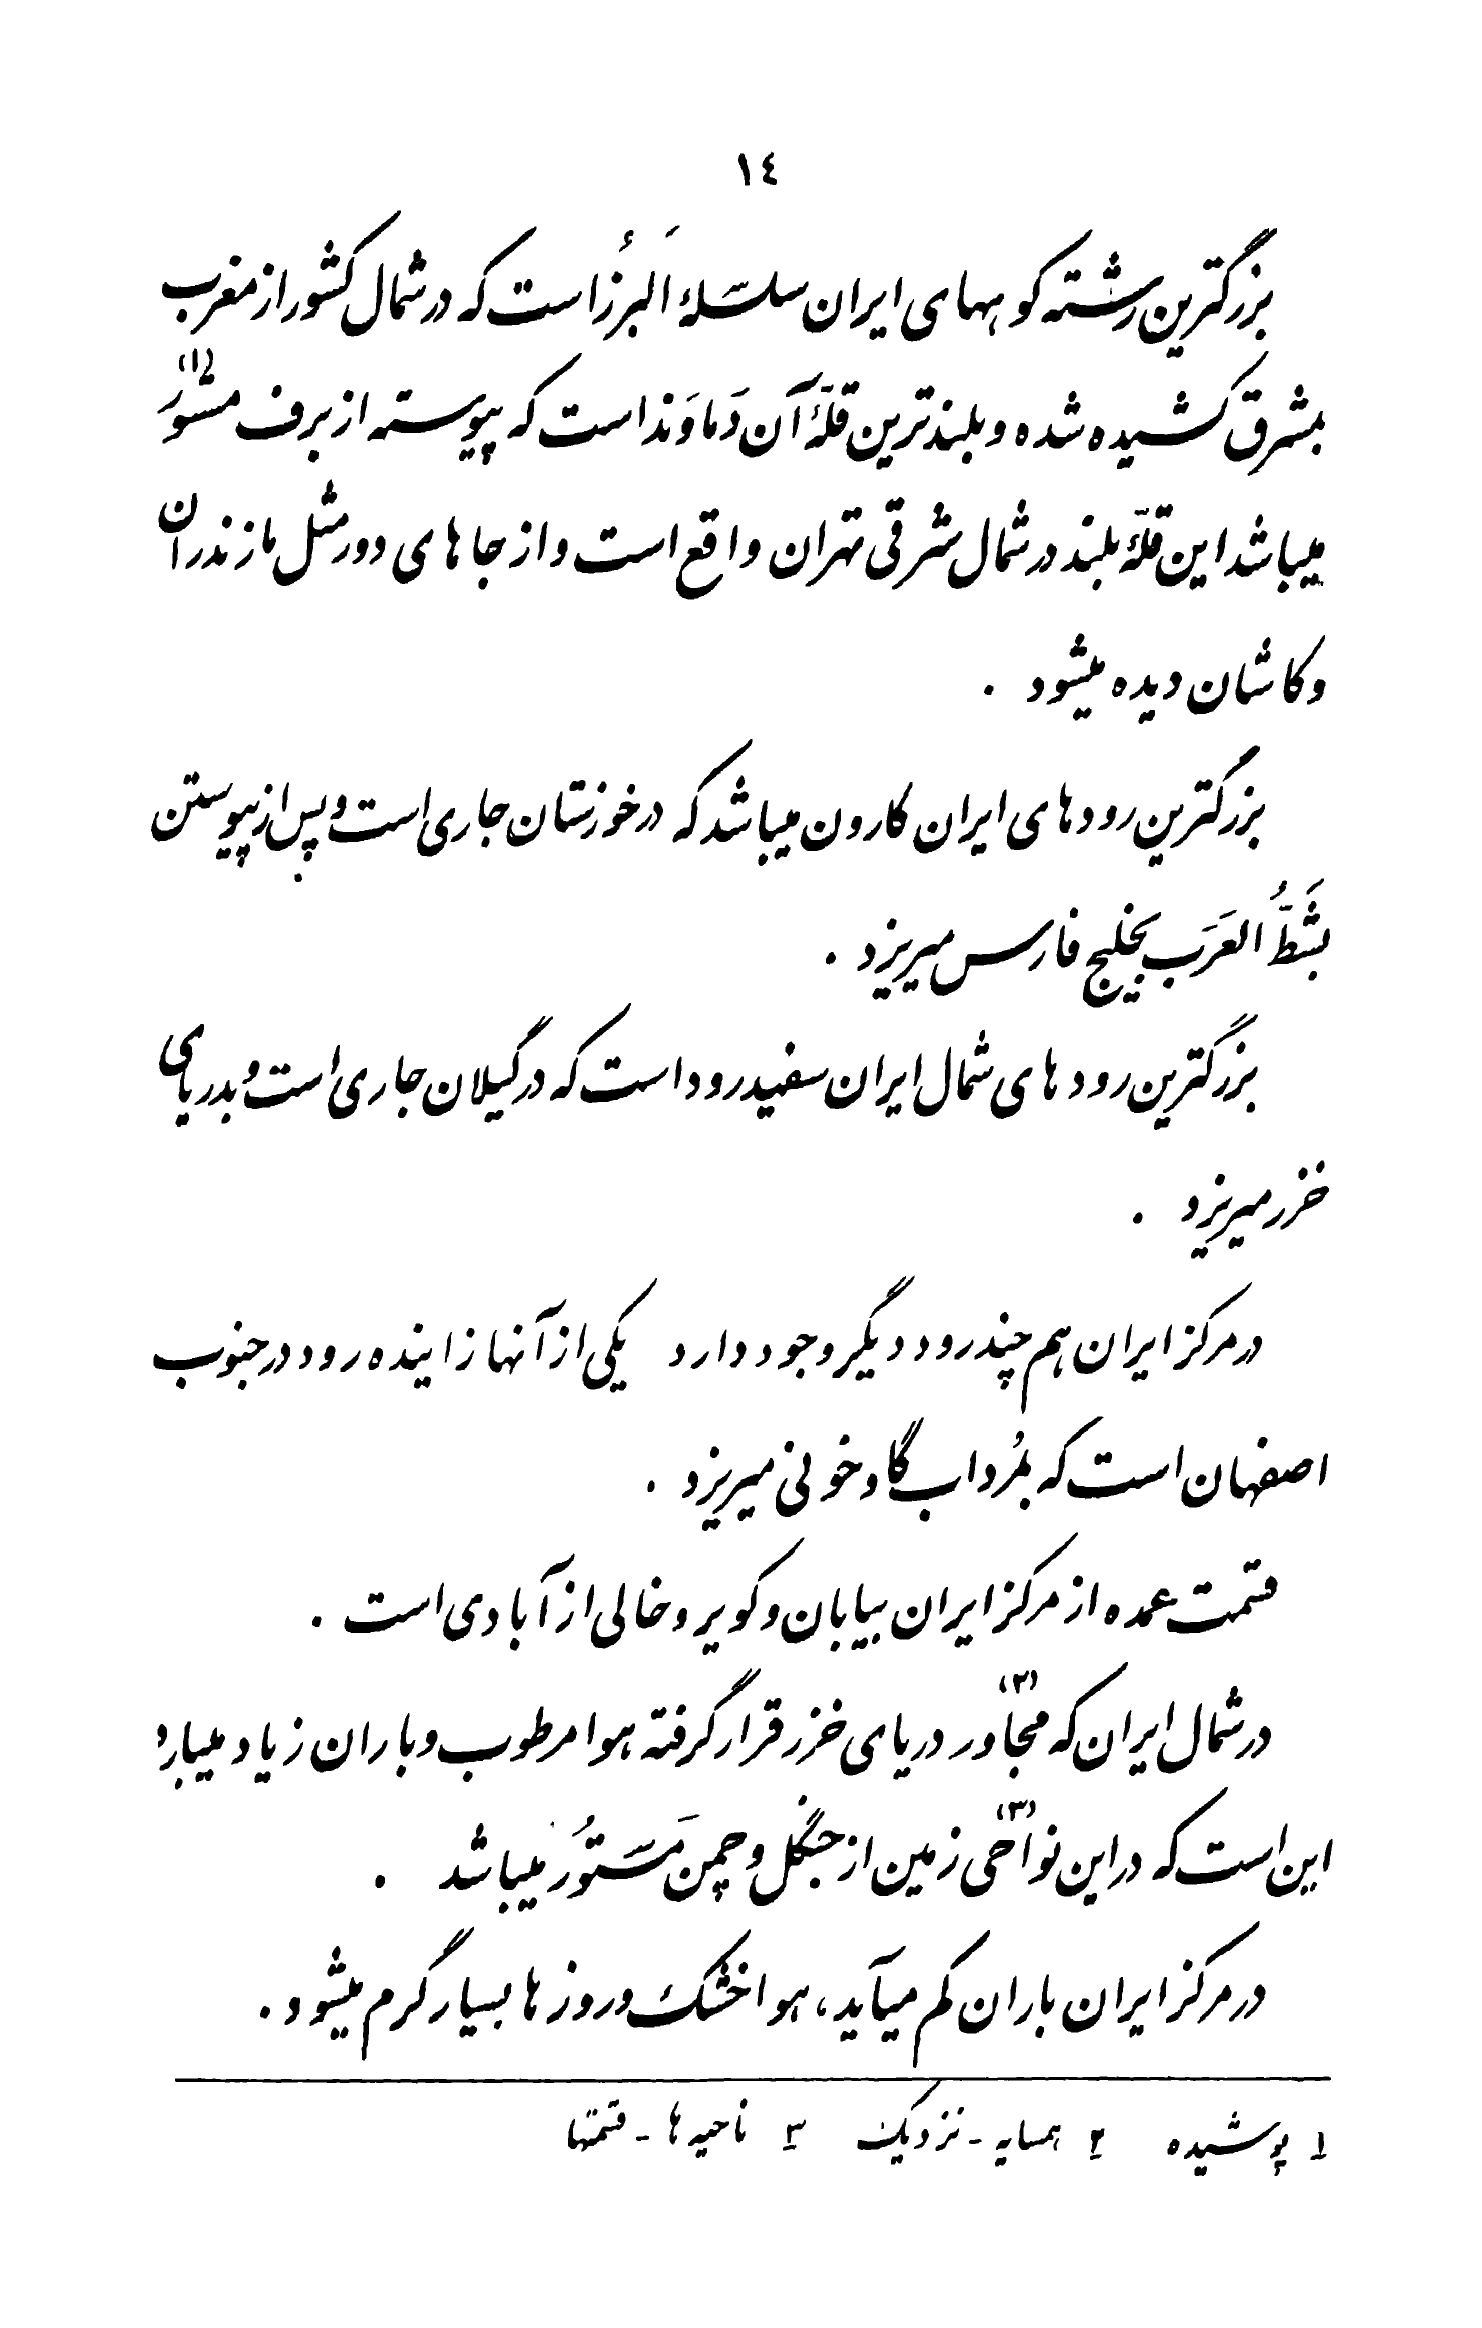 ١٤
بزرگترین رشته کوههای ایران سلسلهٔ اَلبُرز است که در شمال کشور از مغرب
بمشرق کشیده شده و بلندترین قلّهٔ آن دَماوَند است که پیوسته از برف مستور (١)
میباشد این قلّهٔ بلند در شمال شرقی تهران واقع است و از جاهای دور مثل مازندران
و کاشان دیده میشود .
بزرگترین رودهای ایران کارون میباشد که در خوزستان جاری است و پس از پیوستن
بشَطُّ العَرَب بخلیج فارس میریزد .
بزرگترین رودهای شمال ایران سفیدرود است که در گیلان جاری است و بدریای
خزر میریزد .
در مرکز ایران هم چند رود دیگر وجود دارد یکی از آنها زاینده رود در جنوب
اصفهان است که بمُرداب گاوخونی میریزد .
قسمت عمده از مرکز ایران بیابان و کویر و خالی از آبادی است .
در شمال ایران که مجاور (٢) دریای خزر قرار گرفته هوا مرطوب و باران زیاد میبارد
این است که در این نواحی (٣) زمین از جنگل و چمن مَستُور میباشد .
در مرکز ایران باران کم میآید، هوا خشک و روزها بسیار گرم میشود .
١ پوشیده ٢ همسایه - نزدیک ٣ ناحیه ها - قسمتها